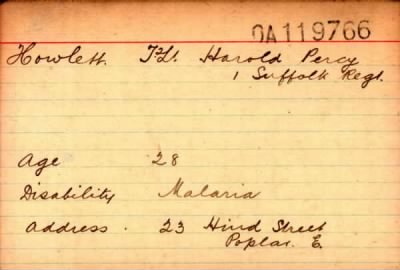 OA119766
Howlett. T/Lt. Harold Percy
1 Suffolk Regt.
Age 28
Disability Malaria
Address. 23 Hind Street
Poplar. E.